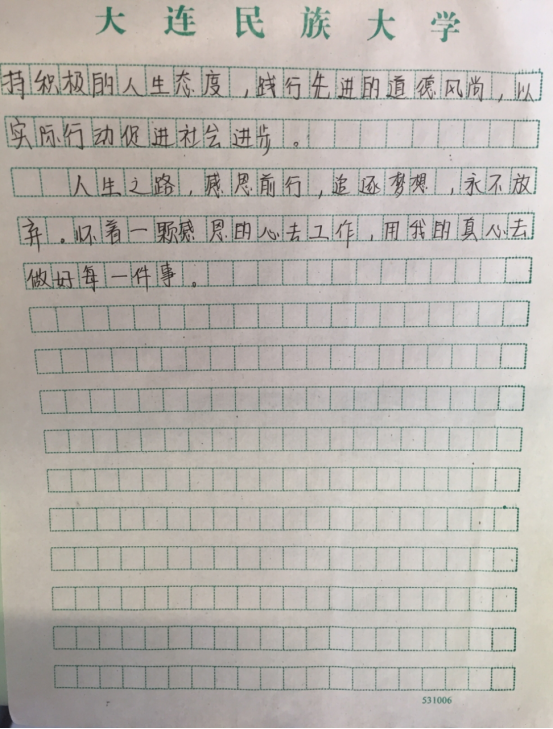 大连民族大学
持积极的人生态度，践行先进的道德风尚，以
实际行动促进社会进步。
人生之路，感恩前行，追逐梦想，永不放
弃。怀着一颗感恩的心去工作，用我的真心去
做好每一件事。
531006